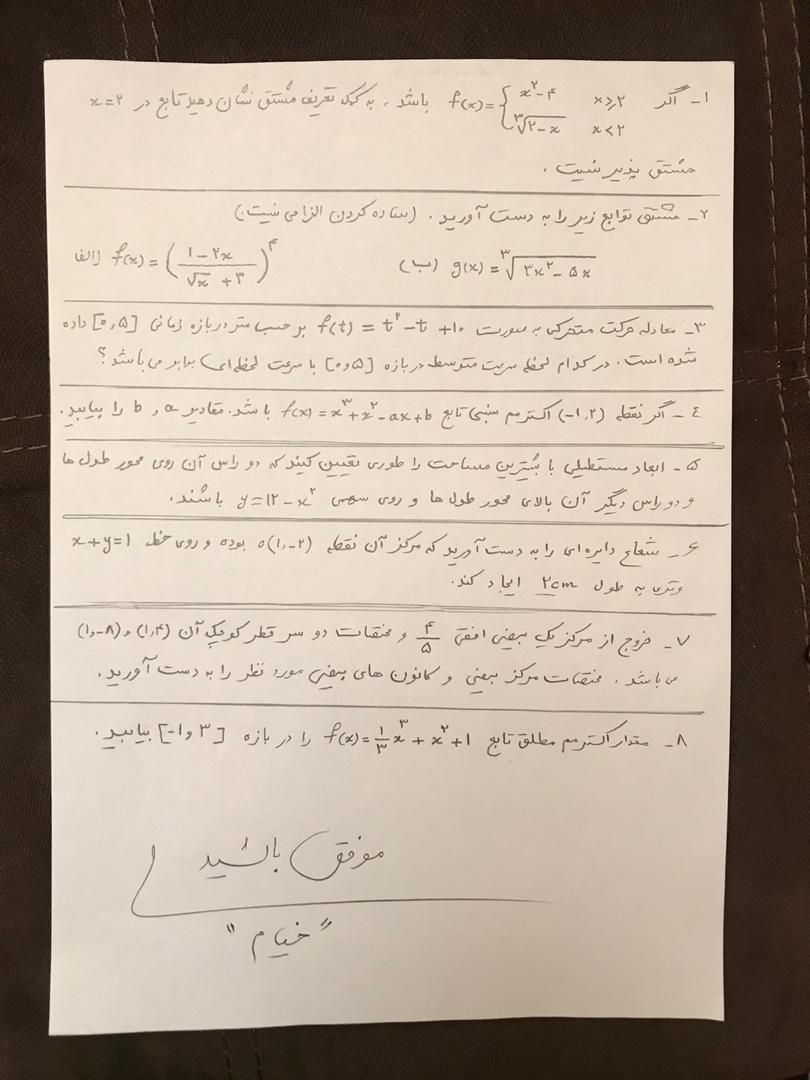 ۱- اگر f(x)= { x²-۴   x≥۲ ; ∛(۲-x)   x<۲ باشد، به کمک تعریف مشتق نشان دهید تابع در x=۲
مشتق پذیر نیست.
۲- مشتق توابع زیر را به دست آورید. (ساده کردن الزامی نیست)
الف) f(x)=((۱-۲x)/(√x+۳))^۴   ب) g(x)=∛(۳x²-۵x)
۳- معادله حرکت متحرکی به صورت f(t)=t²-t+۱۰ بر حسب متر در بازه زمانی [۰,۵] داده
شده است. در کدام لحظه سرعت متوسط در بازه [۰,۵] با سرعت لحظه‌ای برابر می باشد؟
٤- اگر نقطه (-۱,۲) اکسترمم نسبی تابع f(x)=x³+x²-ax+b باشد. مقادیر a و b را بیابید.
۵- ابعاد مستطیلی با بیشترین مساحت را طوری تعیین کنید که دو راس آن روی محور طول ها
و دو راس دیگر آن بالای محور طول ها و روی سهمی y=۱۲-x² باشند.
۶- شعاع دایره ای را به دست آورید که مرکز آن نقطه o(۱,-۲) بوده و روی خط x+y=۱
وتری به طول ۲cm ایجاد کند.
۷- خروج از مرکز یک بیضی افقی ۴/۵ و مختصات دو سر قطر کوچک آن (۱,۴) و (۱,-۸)
می باشد. مختصات مرکز بیضی و کانون های بیضی مورد نظر را به دست آورید.
۸- مقدار اکسترمم مطلق تابع f(x)=⅓x³+x²+۱ را در بازه [-۱,۳] بیابید.
موفق باشید
"خیام"